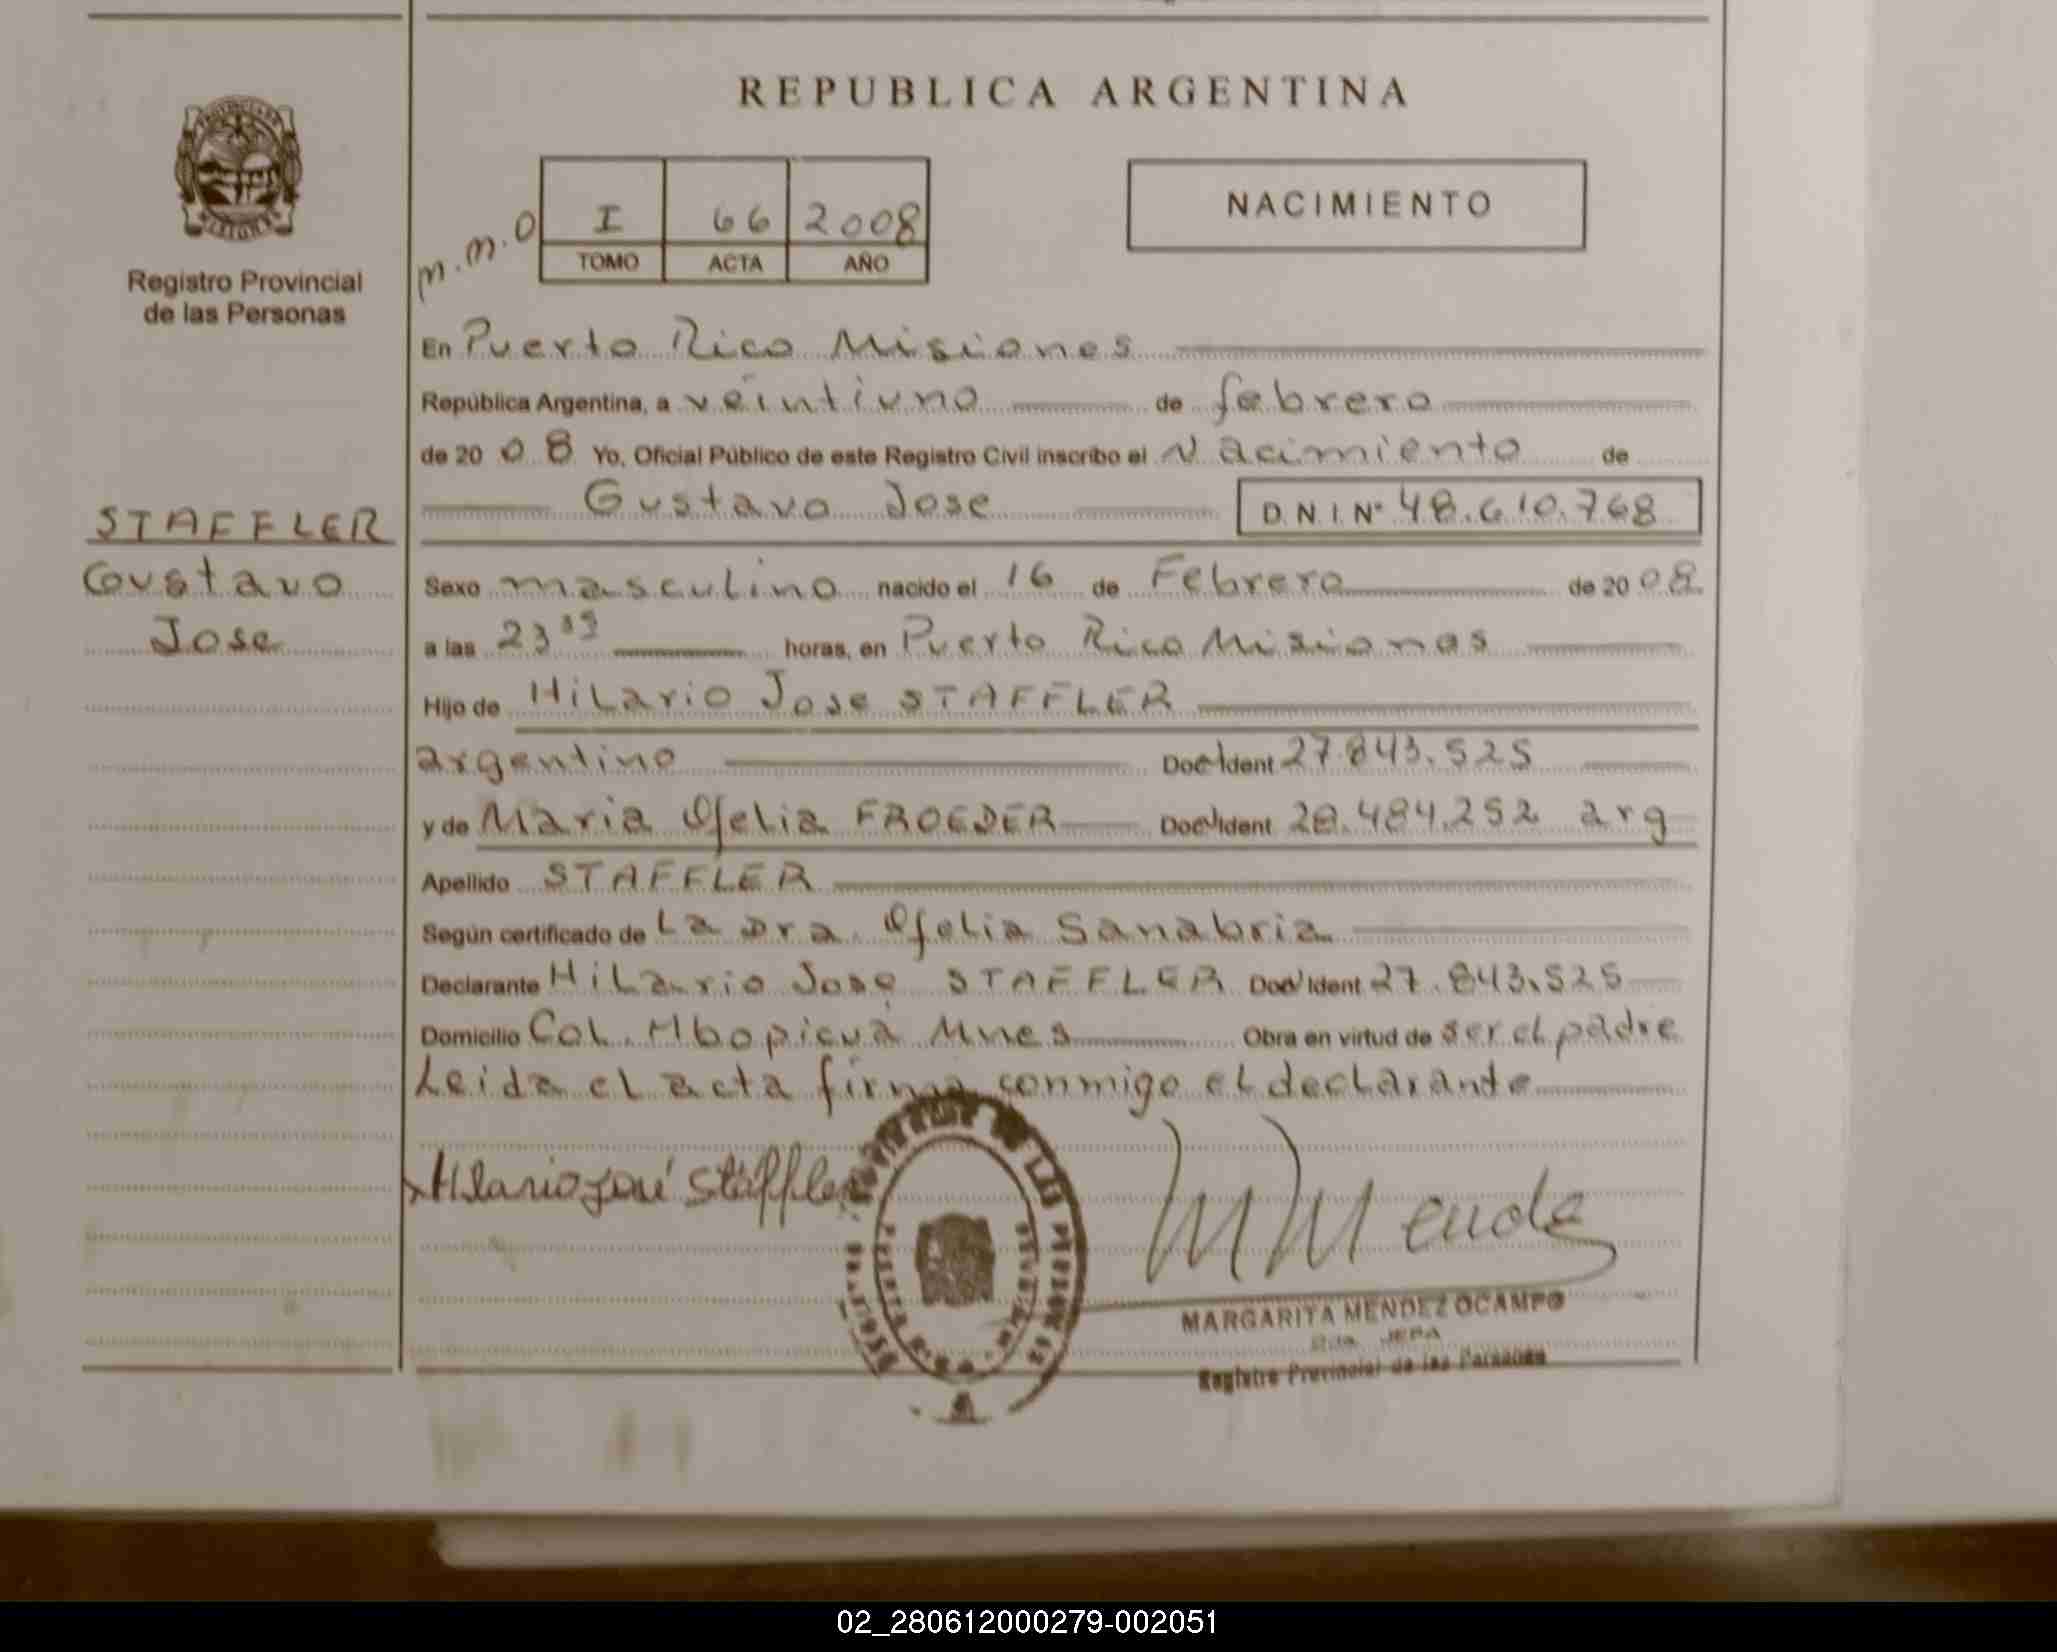 REPUBLICA ARGENTINA
PROVINCIA DE MISIONES
Registro Provincial
de las Personas
m.m.o
I 66 2008
TOMO ACTA AÑO
NACIMIENTO
STAFFLER
Gustavo
Jose
En Puerto Rico Misiones
República Argentina, a veintiuno de febrero
de 20 08 Yo, Oficial Público de este Registro Civil inscribo el Nacimiento de
Gustavo Jose D.N.I. Nº 48.610.768
Sexo masculino nacido el 16 de Febrero de 20 08
a las 23 horas, en Puerto Rico Misiones
Hijo de Hilario Jose STAFFLER
argentino Doc Ident 27.843.525
y de Maria Ofelia FROEDER Doc Ident 28.484.252 arg
Apellido STAFFLER
Según certificado de La Dra. Ofelia Sanabria
Declarante Hilario Jose STAFFLER Doc Ident 27.843.525
Domicilio Col. Mbopicuá Mnes Obra en virtud de ser el padre
Leida el acta firma conmigo el declarante
Hilario José Staffler
MMendez
MARGARITA MENDEZ OCAMPO
JEFA
Registro Provincial de las Personas
02_280612000279-002051